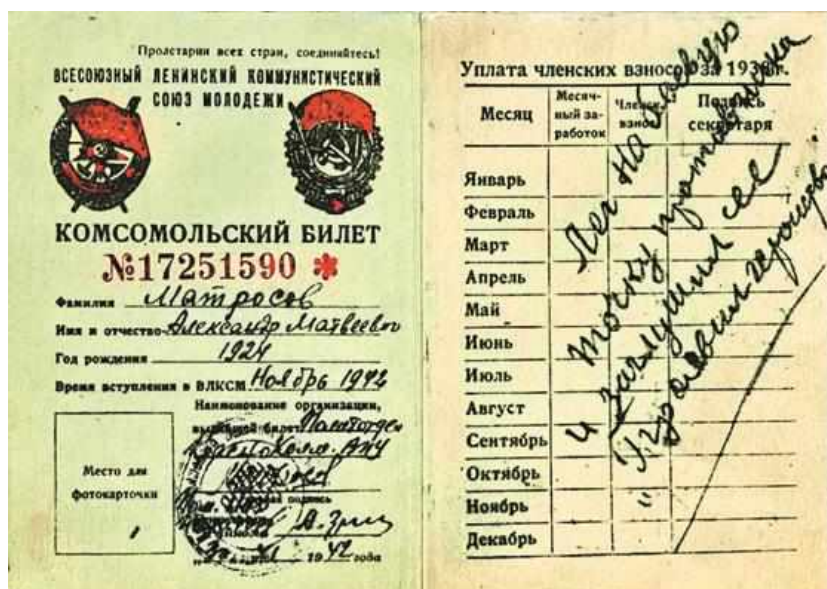 Пролетарии всех стран, соединяйтесь!
ВСЕСОЮЗНЫЙ ЛЕНИНСКИЙ КОММУНИСТИЧЕСКИЙ
СОЮЗ МОЛОДЕЖИ
КОМСОМОЛЬСКИЙ БИЛЕТ
№17251590 *
Фамилия Матросов
Имя и отчество Александр Матвеевич
Год рождения 1924
Время вступления в ВЛКСМ Ноябрь 1942
Наименование организации,
выдавшей билет Политотдел
подпись
1942 года
Место для
фотокарточки
Уплата членских взносов за 1938 г.
Месяц
Месяч-
ный за-
работок
Членск.
взнос
Подпись
секретаря
Январь
Февраль
Март
Апрель
Май
Июнь
Июль
Август
Сентябрь
Октябрь
Ноябрь
Декабрь
Лег на боевую
точку противника
и заглушил ее
Проявил геройство